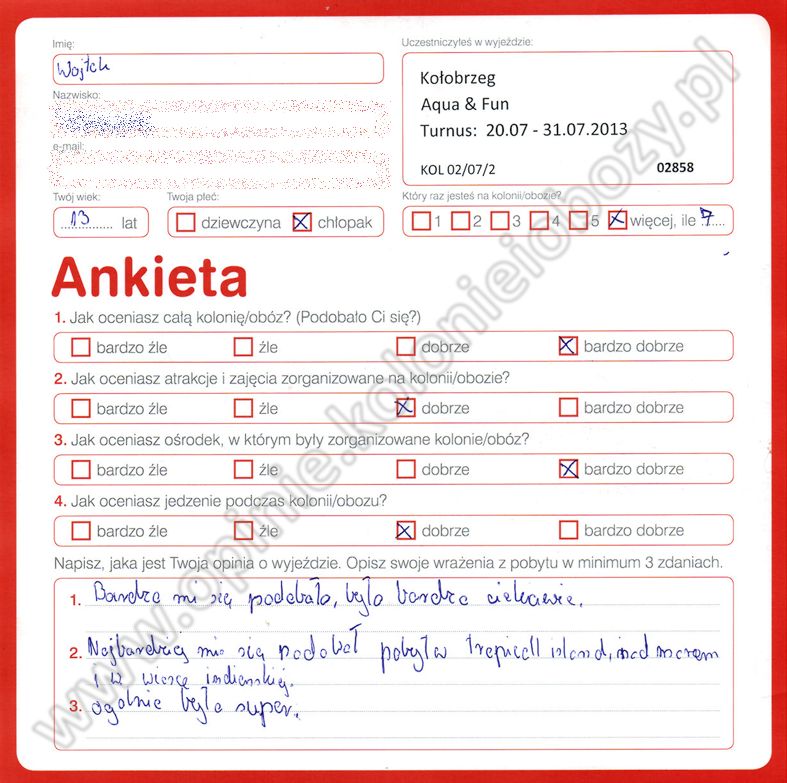 Imię:
Wojtek
Nazwisko:
e-mail:
Uczestniczyłeś w wyjeździe:
Kołobrzeg
Aqua & Fun
Turnus: 20.07 - 31.07.2013
KOL 02/07/2 02858
Twój wiek:
13 lat
Twoja płeć:
dziewczyna chłopak
Który raz jesteś na kolonii/obozie?
1 2 3 4 5 więcej, ile 7
Ankieta
1. Jak oceniasz całą kolonię/obóz? (Podobało Ci się?)
bardzo źle źle dobrze bardzo dobrze
2. Jak oceniasz atrakcje i zajęcia zorganizowane na kolonii/obozie?
bardzo źle źle dobrze bardzo dobrze
3. Jak oceniasz ośrodek, w którym były zorganizowane kolonie/obóz?
bardzo źle źle dobrze bardzo dobrze
4. Jak oceniasz jedzenie podczas kolonii/obozu?
bardzo źle źle dobrze bardzo dobrze
Napisz, jaka jest Twoja opinia o wyjeździe. Opisz swoje wrażenia z pobytu w minimum 3 zdaniach.
1. Bardzo mi się podobało, było bardzo ciekawie.
2. Najbardziej mi się podobał pobyt w tropicall island, nad morzem
i w wiosce indiańskiej.
3. ogólnie było super.
www.opinie.kolonieiobozy.pl